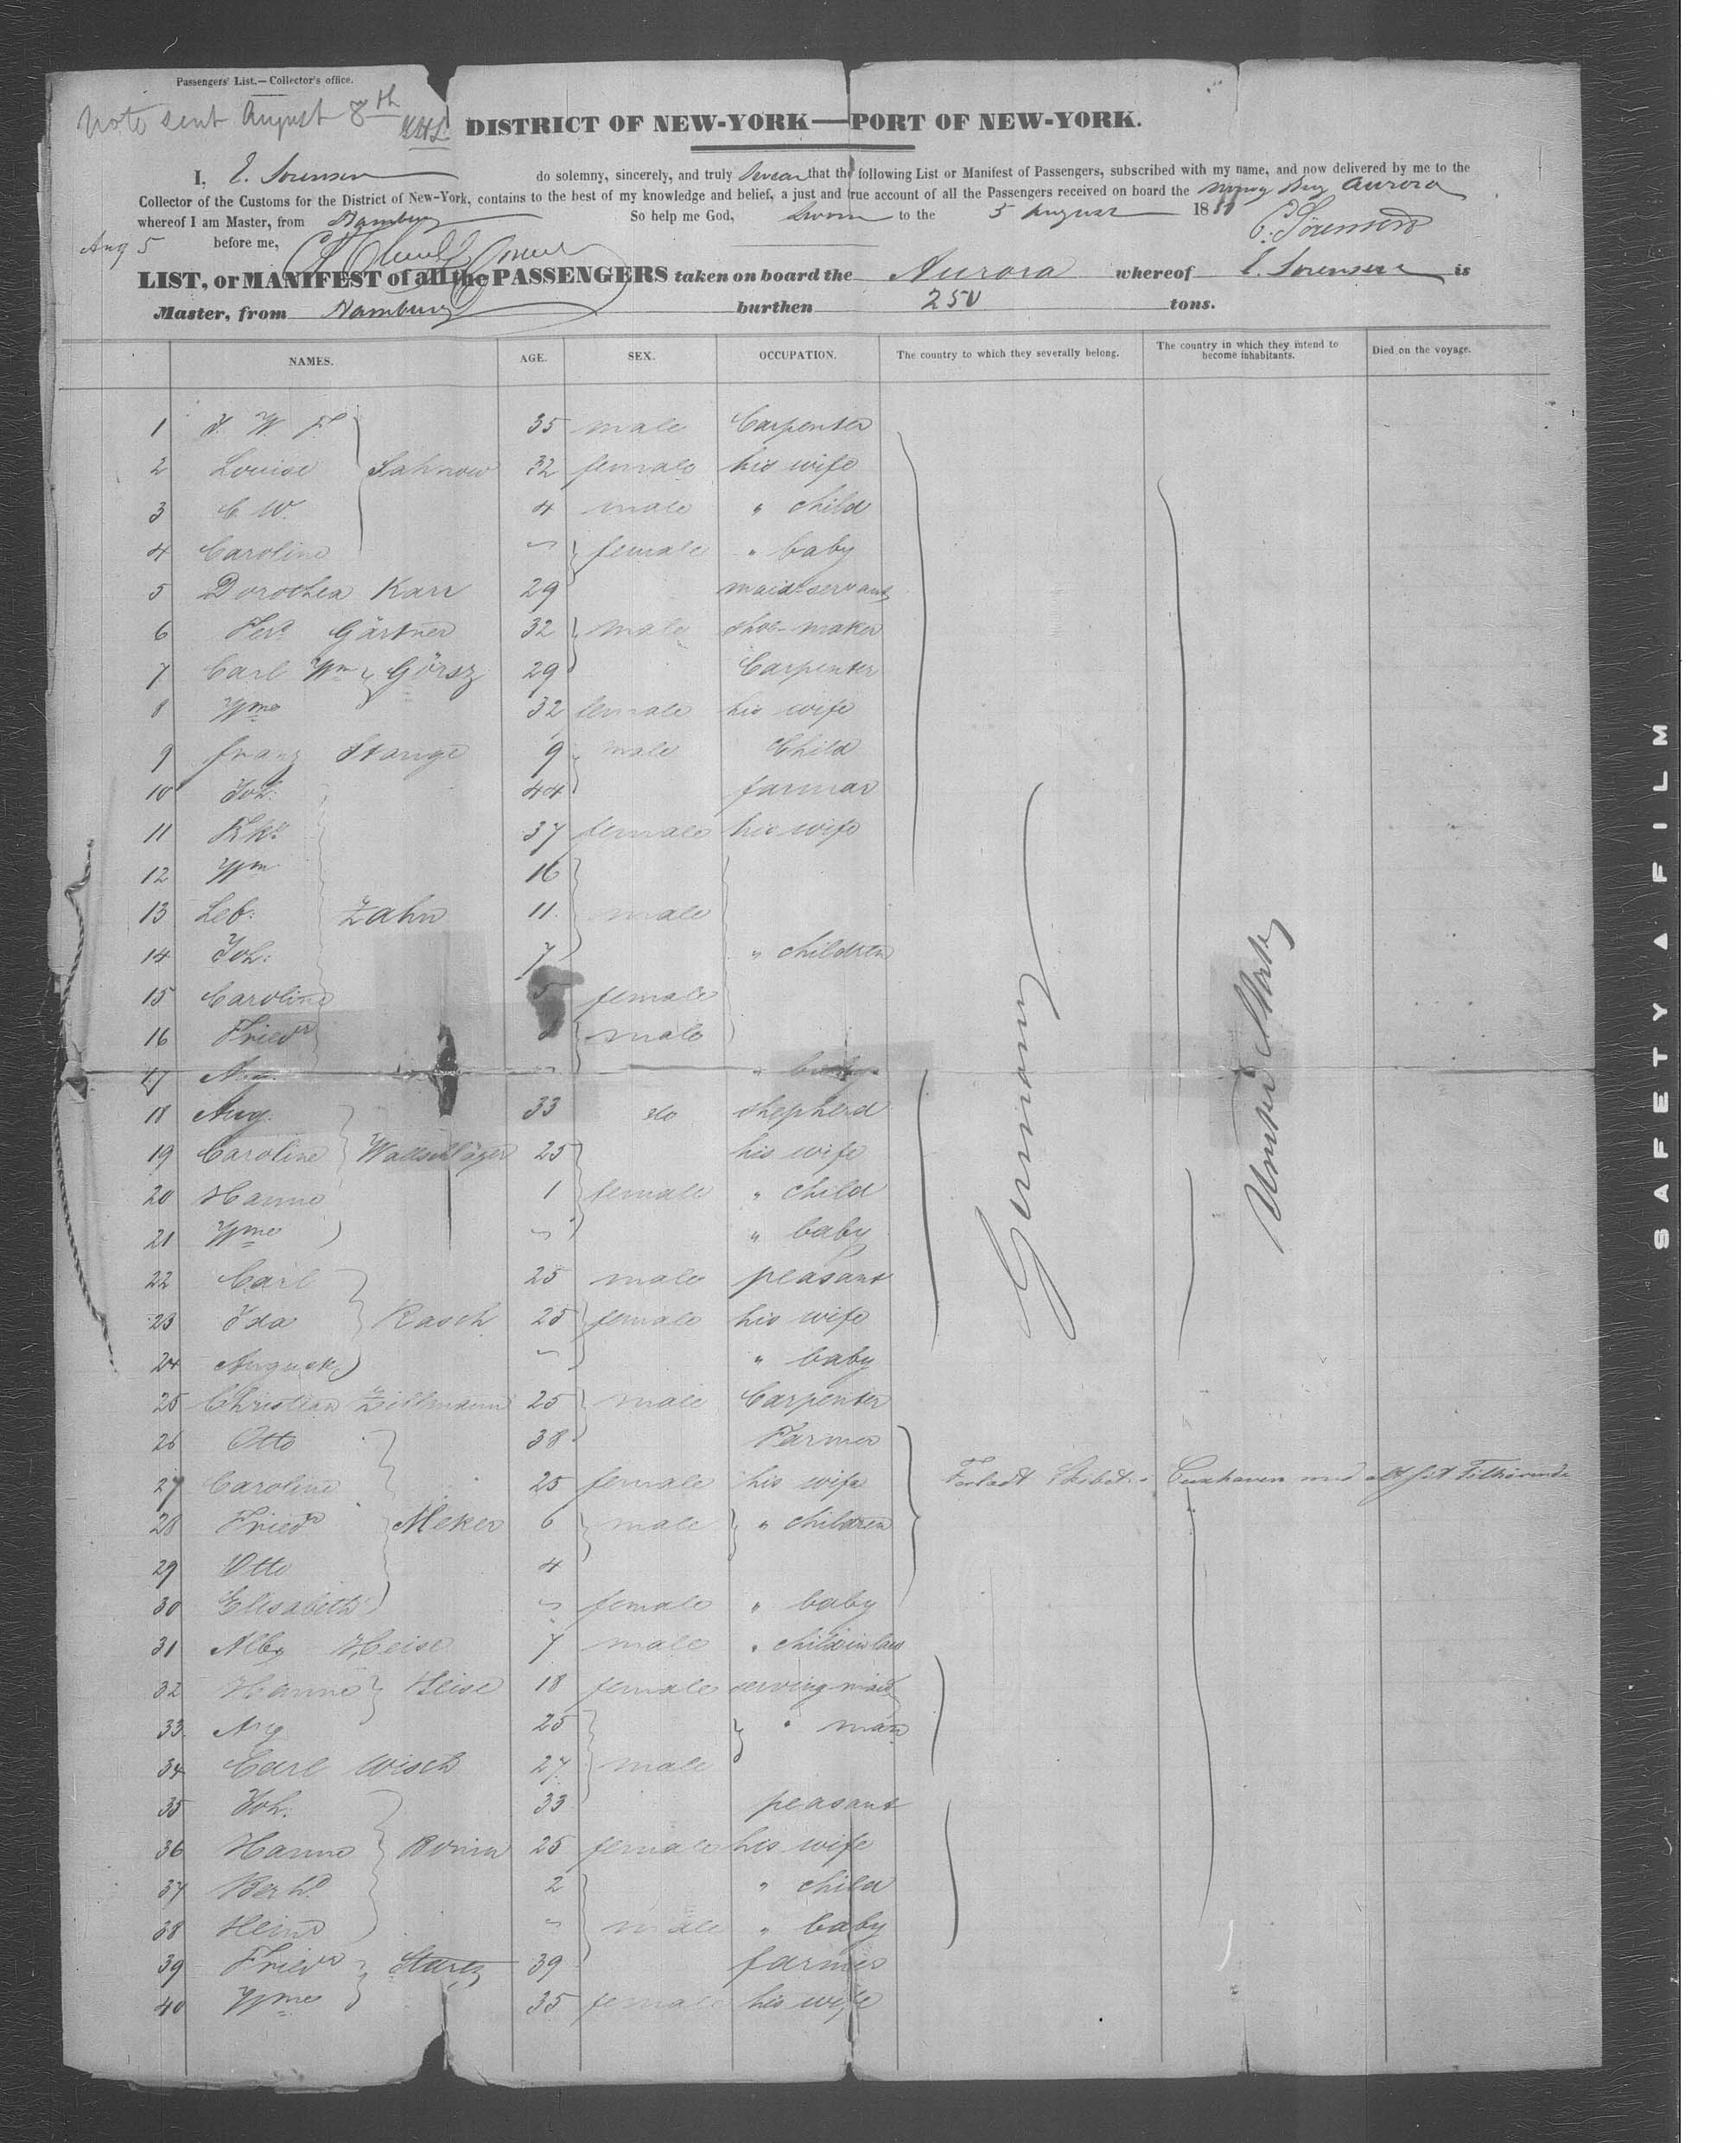 Passengers' List.—Collector's office.
Note sent August 8th
DISTRICT OF NEW-YORK—PORT OF NEW-YORK.
I, E. Sorensen do solemny, sincerely, and truly Swear that the following List or Manifest of Passengers, subscribed with my name, and now delivered by me to the
Collector of the Customs for the District of New-York, contains to the best of my knowledge and belief, a just and true account of all the Passengers received on board the Aurora
whereof I am Master, from Hamburg So help me God, Sworn to the 5 August 18 E. Sörensen
Aug 5 before me,
LIST, or MANIFEST of all the PASSENGERS taken on board the Aurora whereof E. Sorensen is
Master, from Hamburg burthen 250 tons.
NAMES. AGE. SEX. OCCUPATION. The country to which they severally belong. The country in which they intend to become inhabitants. Died on the voyage.
1 F. W. F. 35 male Carpenter
2 Louise Sahnow 32 female his wife
3 C. W. 4 male " child
4 Caroline female " baby
5 Dorothea Karr 29 maid-servant
6 Ferd Gärtner 32 male shoe-maker
7 Carl Wm Görsz 29 Carpenter
8 Wme 32 female his wife
9 Franz Stange 9 male Child
10 Joh: 44 farmer
11 Rke 37 female his wife
12 Wm 16
13 Leb: Zahn 11 male
14 Joh: 7 " children
15 Caroline 5 female
16 Friedr male
17 Aug. " baby
18 Aug. 33 do shepherd
19 Caroline Wallschläger 25 his wife
20 Hanne 1 female " child
21 Wme " baby
22 Carl 25 male peasant
23 Ida Rasch 25 female his wife
24 Auguste " baby
25 Christian Zillmann 25 male Carpenter
26 Otto 38 Farmer
27 Caroline 25 female his wife Forladt Skibet i Cuxhaven med alt sit Tilhørende
28 Friedr Meker 6 male " children
29 Otto 4
30 Elisabeth female " baby
31 Alb. Heise 7 male " child in law
32 Hanne Heise 18 female serving maid
33 Aug 25 " man
34 Carl Wisch 27 male
35 Joh. 33 peasant
36 Hanne 25 female his wife
37 Berhd 2 " child
38 Heinr male " baby
39 Friedr Startz 39 farmer
40 Wme 35 female his wife
Germany
United States
SAFETY A FILM